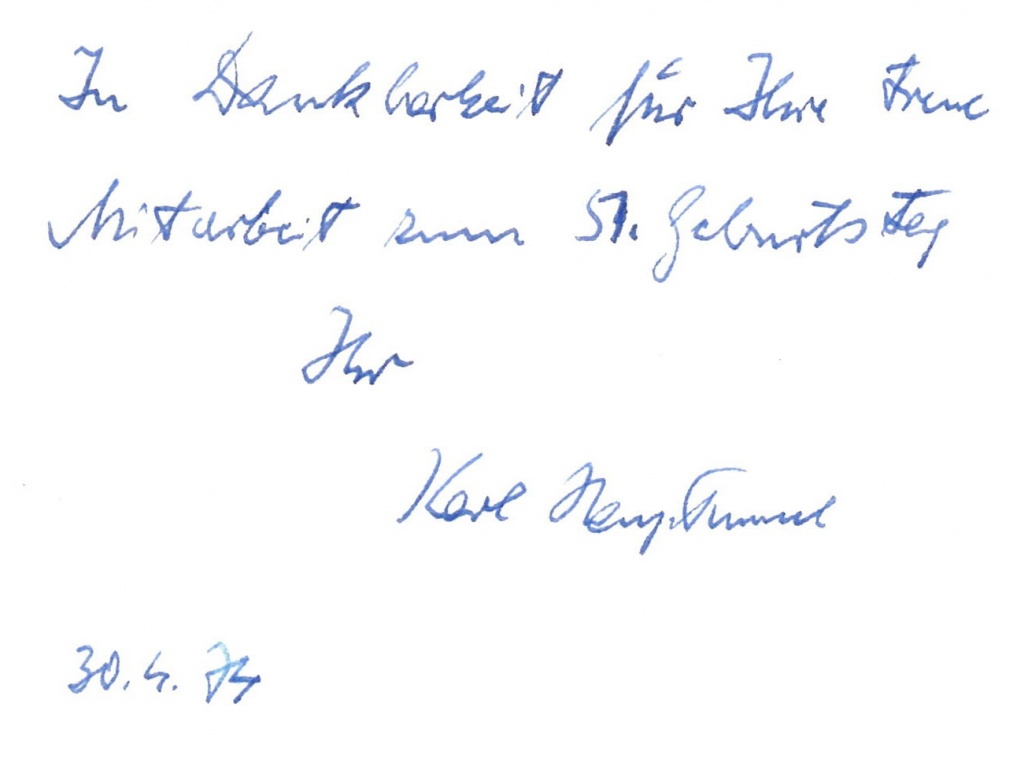 In Dankbarkeit für Ihre treue
Mitarbeit zum 51. Geburtstag
Ihr
Karl
30.4.74